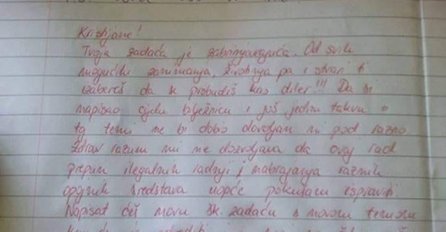 Kristijane!
Tvoja zadaća je zabrinjavajuća. Od svih
mogućih zanimanja, životinja pa i stvari ti
izabereš da se probudiš kao diler!!! Da si
napisao cijelu bilježnicu i još jednu takvu o
toj temi ne bi dobio dovoljan ni pod razno
Zdrav razum mi ne dozvoljava da ovaj rad
prepun ilegalnih radnji i nabrajanja raznih
opojnih sredstava uopće pokušam ispraviti
Napisat ćeš novu šk. zadaću s novom temom